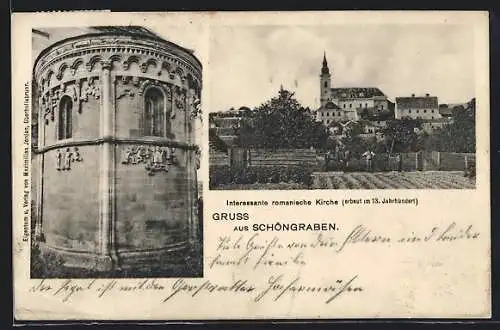 Eigentum u. Verlag von Maximilian Jordan, Oberhollabrunn.
Interessante romanische Kirche (erbaut im 13. Jahrhundert)
GRUSS
AUS SCHÖNGRABEN.
Viele Grüße von den Eltern und Kinder
samt Familie
Der ist mit den